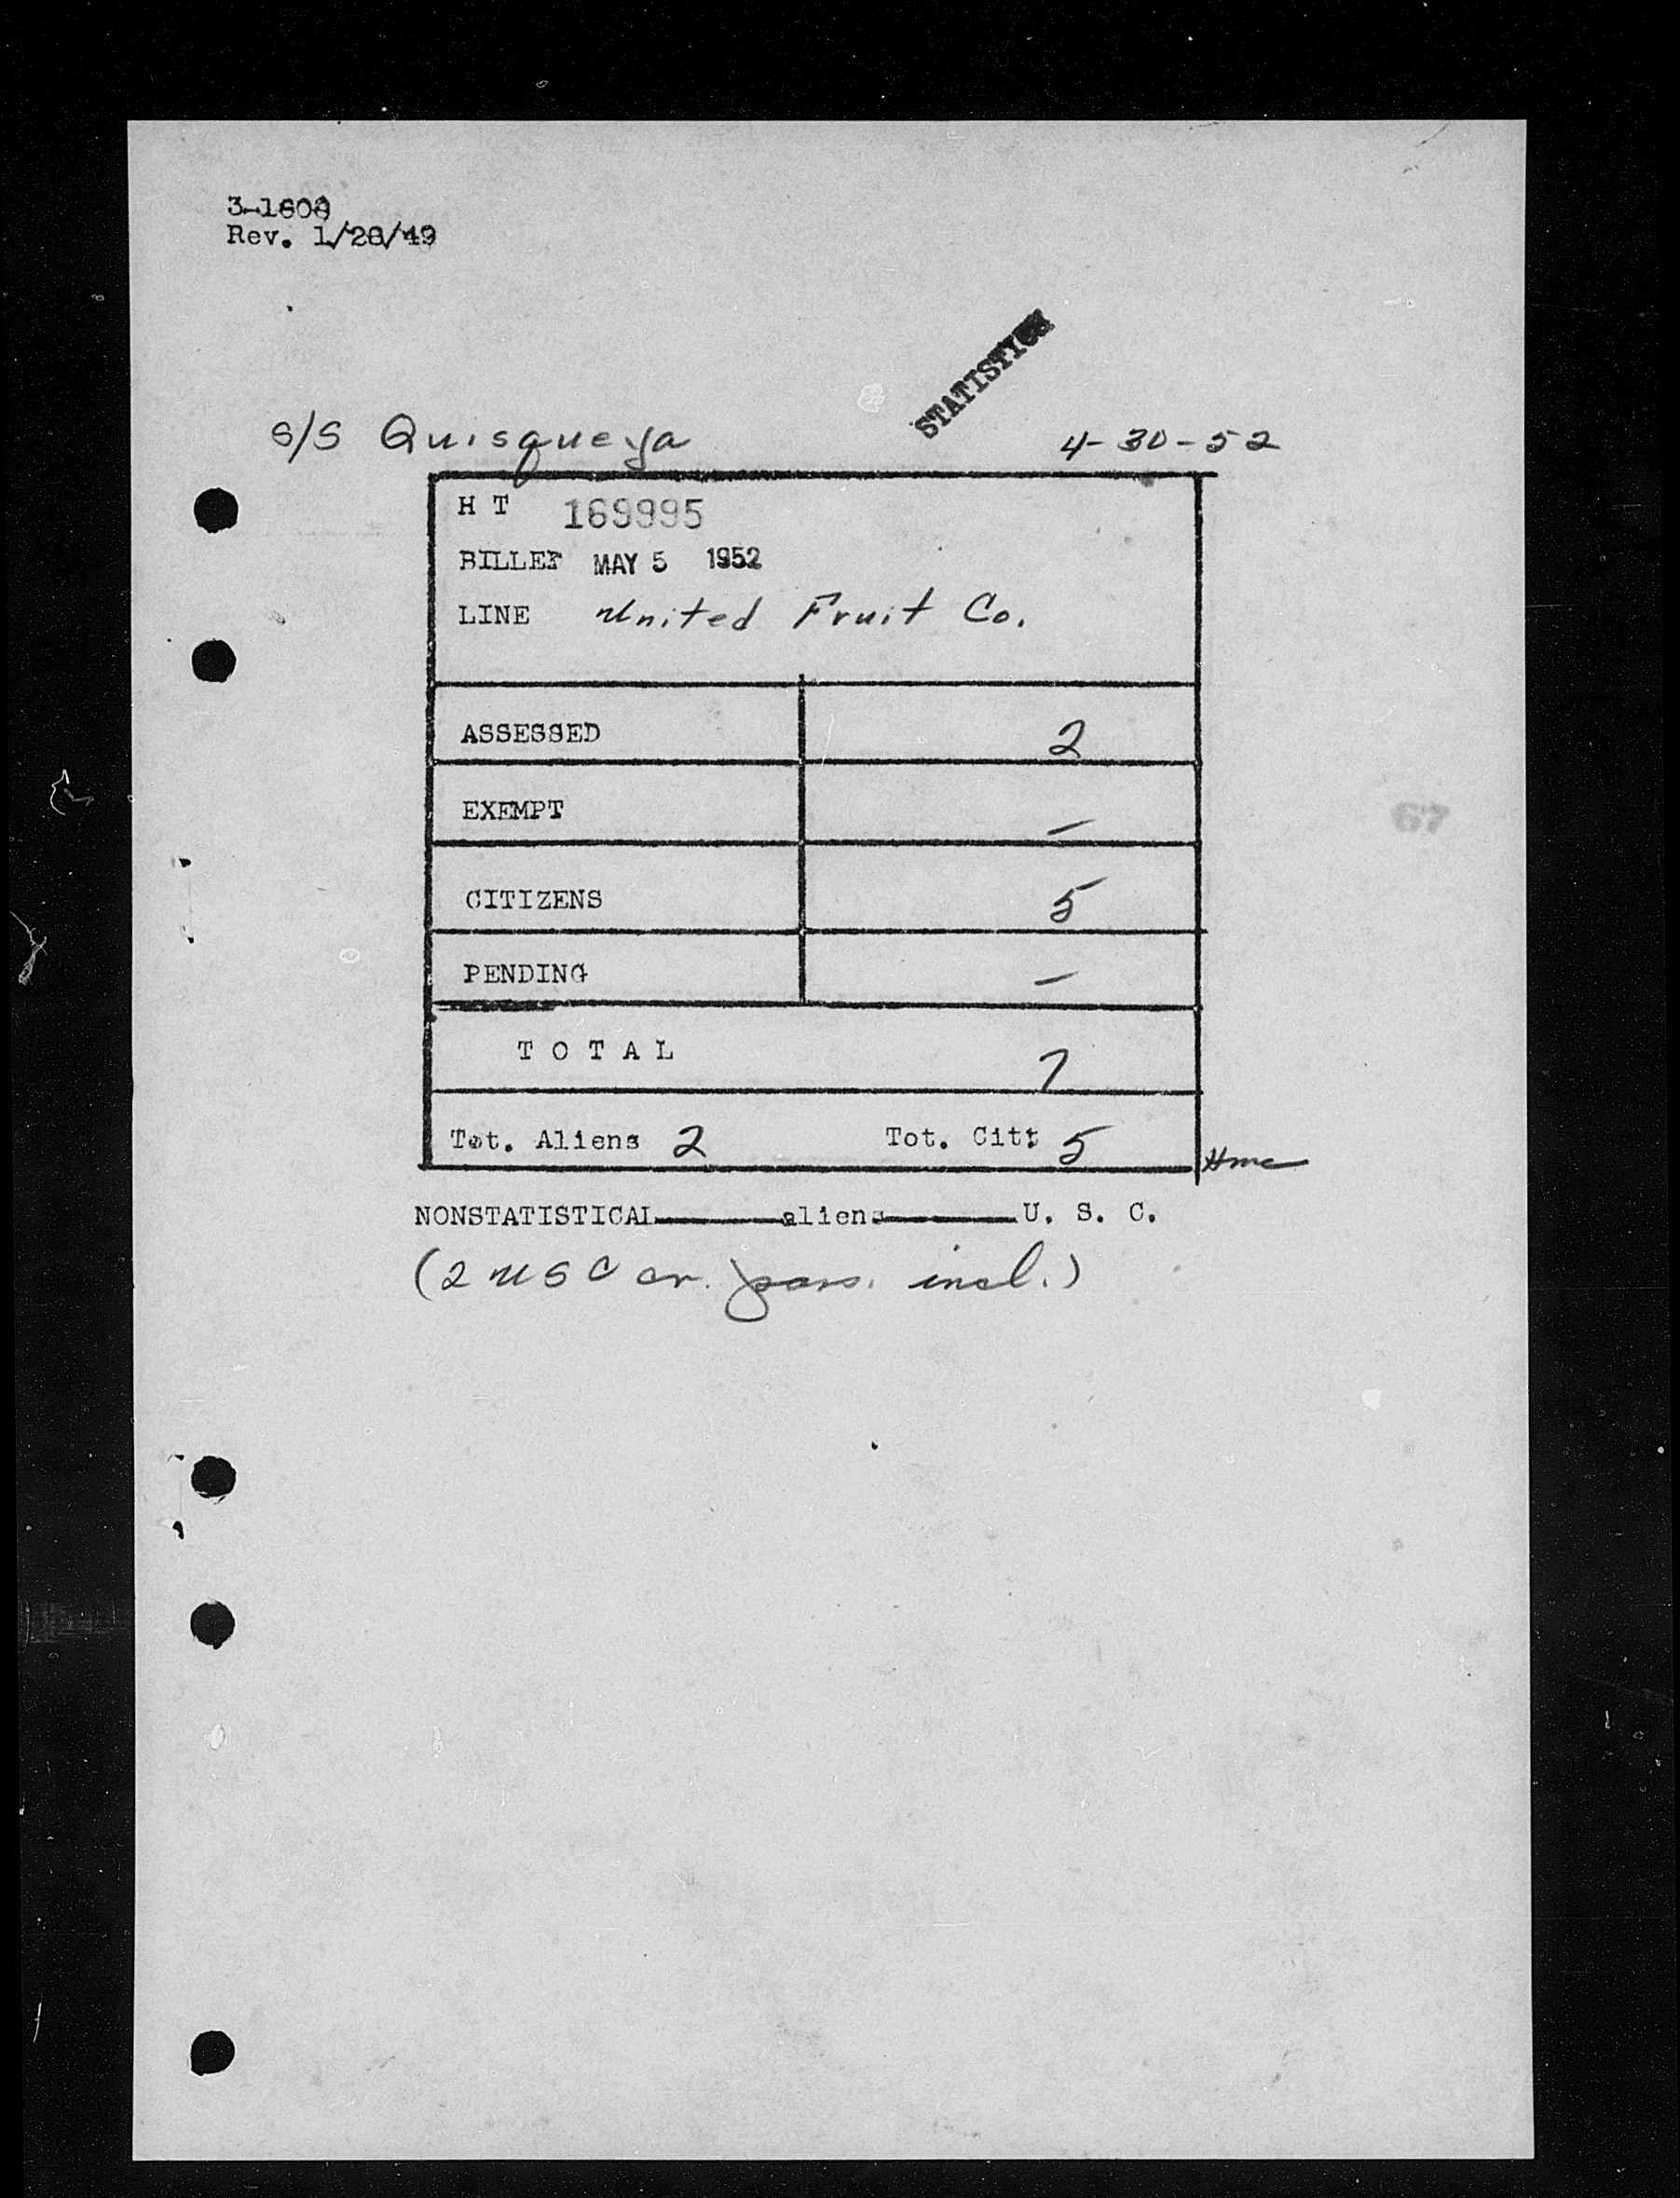 3-1608
Rev. 1/28/49
STATISTICS
S/S Quisqueya 4-30-52
H T 169995
BILLED MAY 5 1952
LINE United Fruit Co.
ASSESSED 2
EXEMPT —
CITIZENS 5
PENDING —
T O T A L 7
Tot. Aliens 2 Tot. Cit: 5
Hmc
NONSTATISTICAL aliens U. S. C.
(2 USC cr. pass. incl.)
67